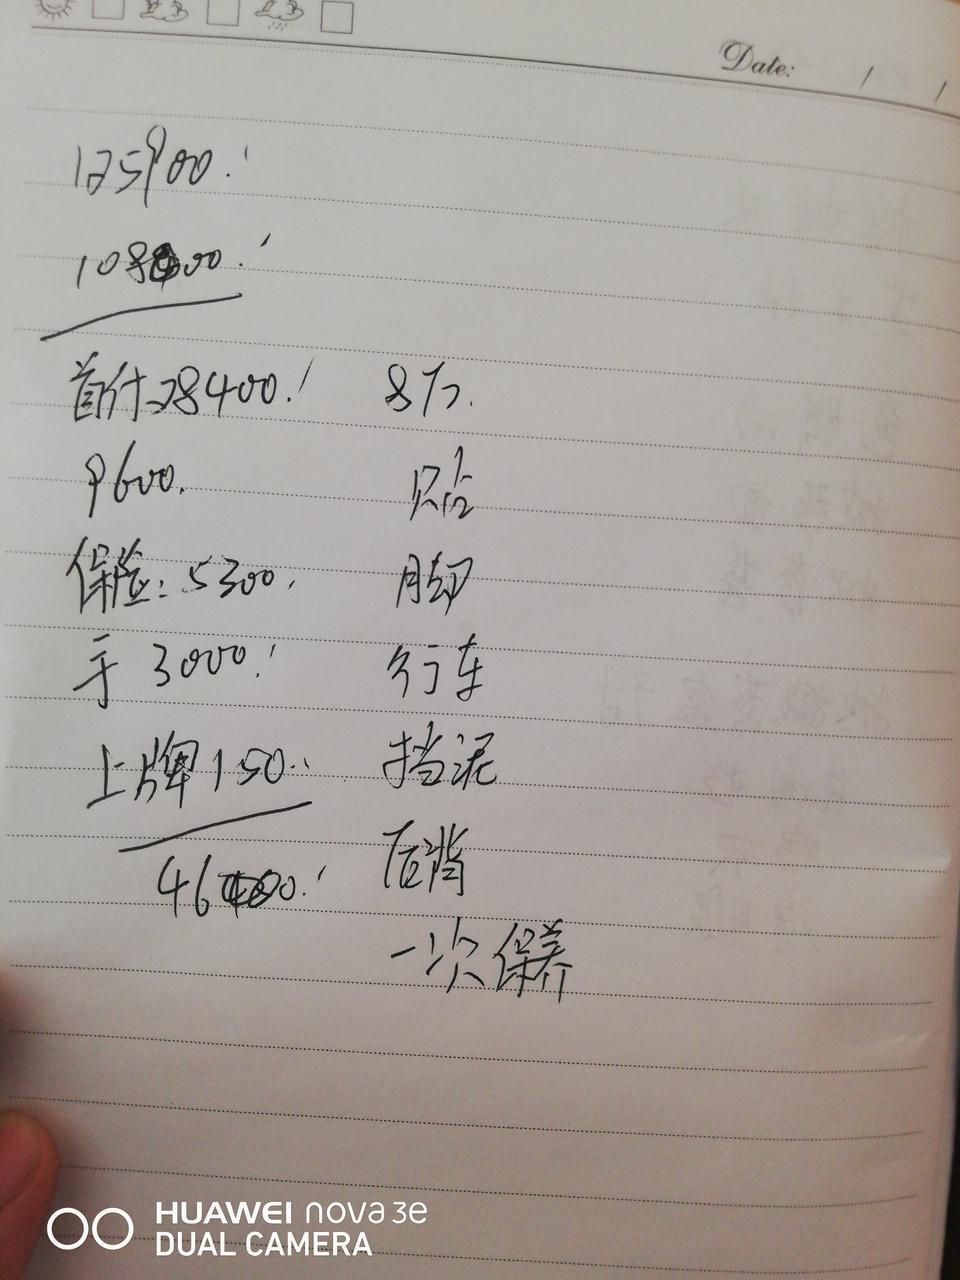 Date: / /
125900.
108400.
首付28400. 8万.
9600. 贴
保险:5300. 脚
手 3000. 行车
上牌150. 挡泥
46400. 后背
一次保养
HUAWEI nova 3e
DUAL CAMERA